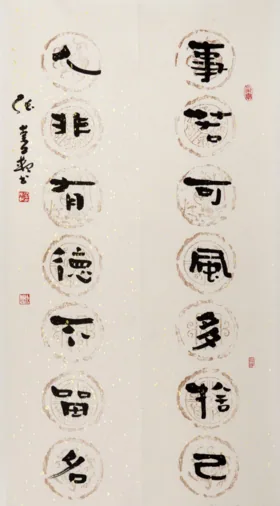 事若可風多捨己
人非有德不留名